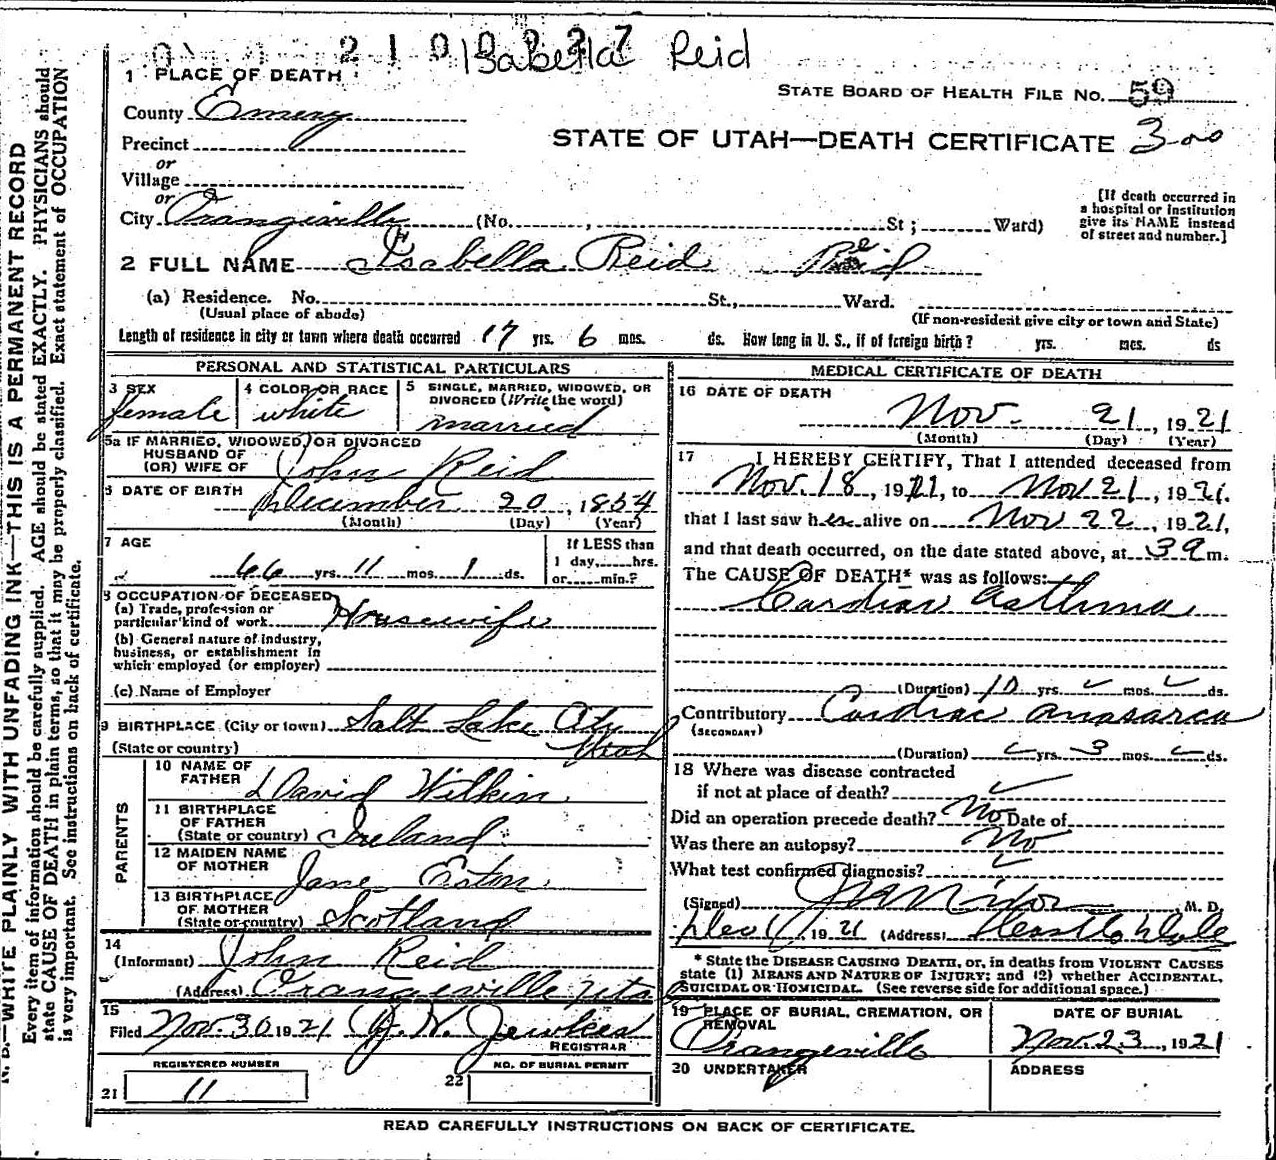 2100227
Isabella Reid
1 PLACE OF DEATH
STATE BOARD OF HEALTH FILE No. 59
County Emery
STATE OF UTAH—DEATH CERTIFICATE 300
Precinct
or
Village
or
City Orangeville (No. St; Ward)
[If death occurred in
a hospital or institution
give its NAME instead
of street and number.]
2 FULL NAME Isabella Reid Reid
(a) Residence. No. St., Ward.
(Usual place of abode) (If non-resident give city or town and State)
Length of residence in city or town where death occurred 17 yrs. 6 mos. ds. How long in U. S., if of foreign birth? yrs. mos. ds
PERSONAL AND STATISTICAL PARTICULARS
3 SEX female
4 COLOR OR RACE white
5 SINGLE, MARRIED, WIDOWED, OR
DIVORCED (Write the word)
married
5a IF MARRIED, WIDOWED, OR DIVORCED
HUSBAND OF
(OR) WIFE OF John Reid
6 DATE OF BIRTH December 20, 1854
(Month) (Day) (Year)
7 AGE
66 yrs. 11 mos. 1 ds.
If LESS than
1 day, hrs.
or min.?
8 OCCUPATION OF DECEASED
(a) Trade, profession or
particular kind of work Housewife
(b) General nature of industry,
business, or establishment in
which employed (or employer)
(c) Name of Employer
9 BIRTHPLACE (City or town) Salt Lake City
(State or country) Utah
PARENTS
10 NAME OF
FATHER David Wilkin
11 BIRTHPLACE
OF FATHER
(State or country) Ireland
12 MAIDEN NAME
OF MOTHER Jane Eston
13 BIRTHPLACE
OF MOTHER
(State or country) Scotland
14
(Informant) John Reid
(Address) Orangeville Uta
15
Filed Nov. 30 1921 J. W. Jewkes
REGISTRAR
REGISTERED NUMBER
21 11
NO. OF BURIAL PERMIT
22
MEDICAL CERTIFICATE OF DEATH
16 DATE OF DEATH
Nov. 21, 1921
(Month) (Day) (Year)
17 I HEREBY CERTIFY, That I attended deceased from
Nov. 18, 1921, to Nov 21, 1921.
that I last saw her alive on Nov 22, 1921,
and that death occurred, on the date stated above, at 3 9 m.
The CAUSE OF DEATH* was as follows:
Cardiac Asthma
(Duration) 10 yrs. mos. ds.
Contributory Cardiac anasarca
(SECONDARY)
(Duration) yrs. 3 mos. ds.
18 Where was disease contracted
if not at place of death?
Did an operation precede death? No Date of
Was there an autopsy? No
What test confirmed diagnosis?
(Signed) M. D.
1921 (Address)
* State the DISEASE CAUSING DEATH, or, in deaths from VIOLENT CAUSES
state (1) MEANS AND NATURE OF INJURY; and (2) whether ACCIDENTAL,
SUICIDAL OR HOMICIDAL. (See reverse side for additional space.)
19 PLACE OF BURIAL, CREMATION, OR
REMOVAL
Orangeville
DATE OF BURIAL
Nov. 23, 1921
20 UNDERTAKER
ADDRESS
READ CAREFULLY INSTRUCTIONS ON BACK OF CERTIFICATE.
N. B.—WRITE PLAINLY WITH UNFADING INK—THIS IS A PERMANENT RECORD
Every item of information should be carefully supplied. AGE should be stated EXACTLY. PHYSICIANS should
state CAUSE OF DEATH in plain terms, so that it may be properly classified. Exact statement of OCCUPATION
is very important. See instructions on back of certificate.